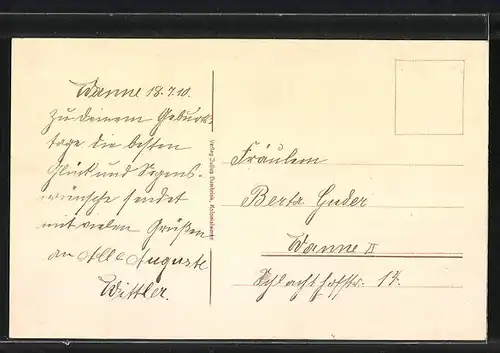 Wanne 18.7.10.
Zu deinem Geburts-
tage die besten
Glück und Segens-
wünsche sendet
mit vielen Grüßen
an Alle Auguste
Wittler.
Verlag Julius
Fräulein
Berta Guder
Wanne II
Schlachthofstr. 13.